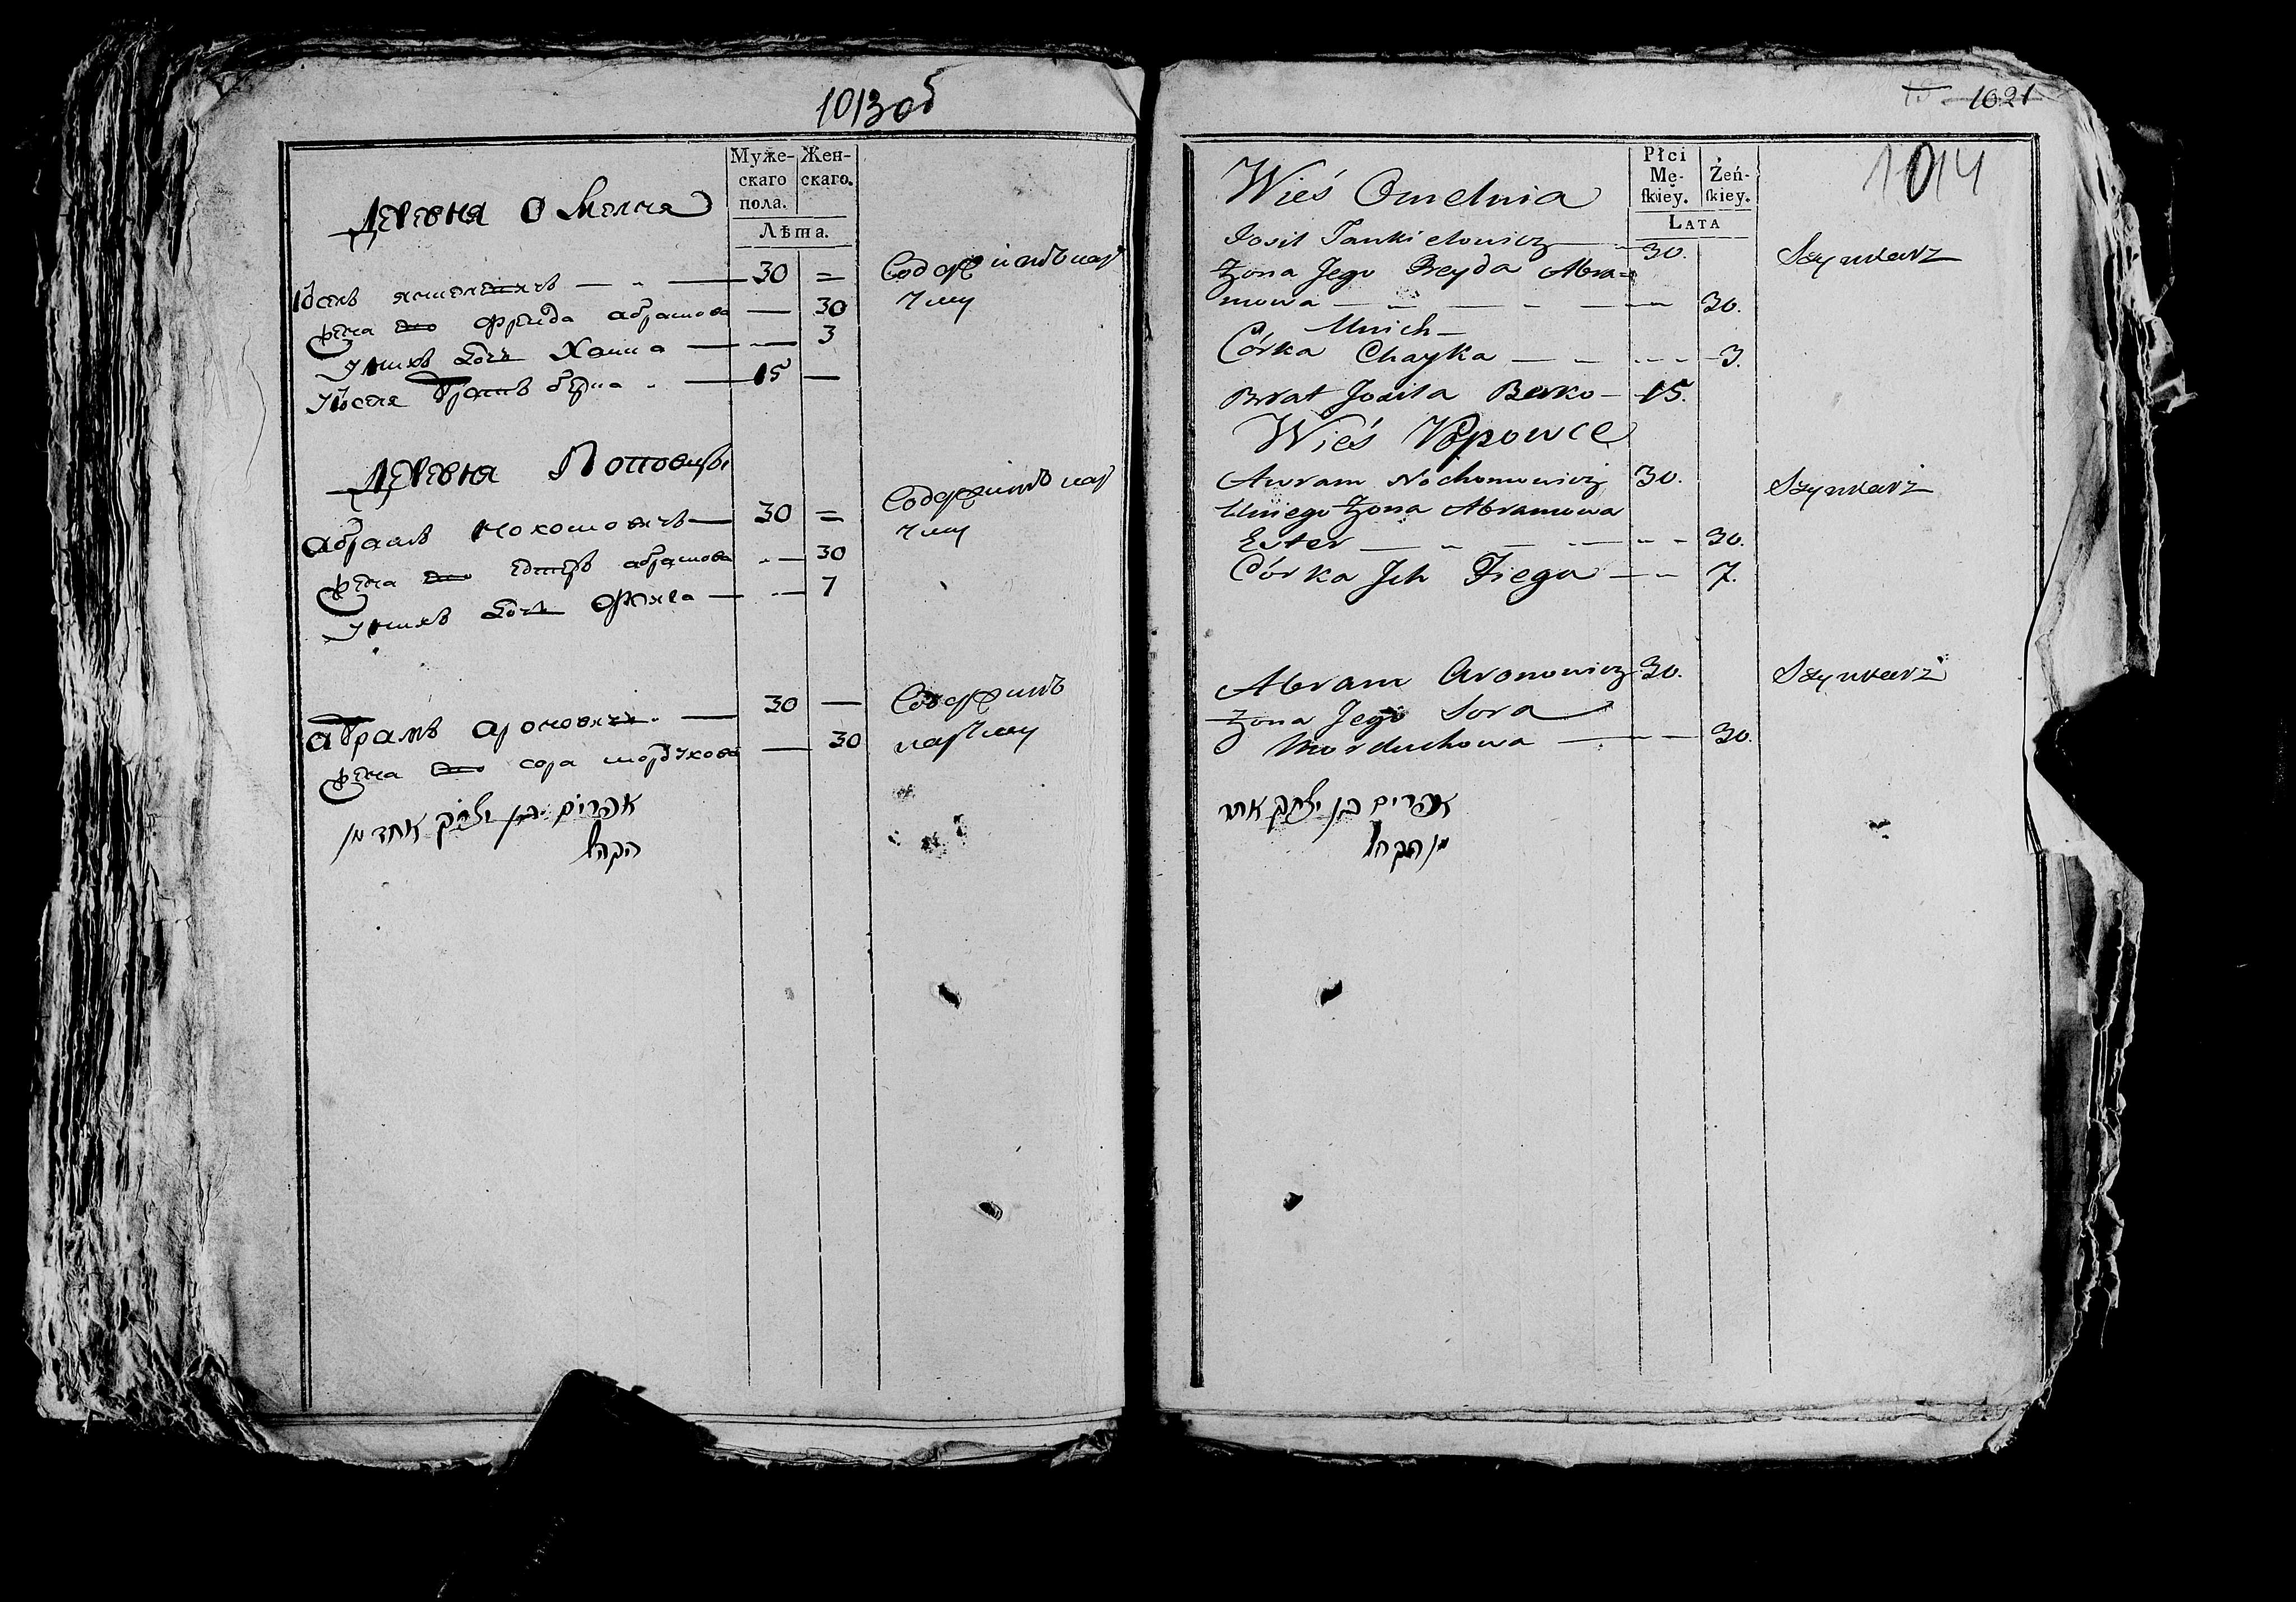 1013 об
Муже-
скаго
пола.
Жен-
скаго.
Лѣта.
Деревня Омелня
30 = Содержитъ кар
жена его Фрейда абрамова — 30 чму
у нихъ дочь Хайка — 3
Іоселя братъ берка — 15 —
Деревня Поповцы
абрамъ нохомовичъ — 30 = Содержитъ кар
жена его естеръ абрамова — 30 чму
у нихъ дочь Фейга — 7
абрамъ ароновичъ — 30 — Содержитъ
жена его сора мордухова — 30 карчму
אפרים בן יצחק אחד מן
הקהל
1021
1014
Płci
Mę-
skiey.
Żeń-
skiey.
LATA
Wieś Omelnia
Josil Jankielowicz — 30. Szynkarz
Żona Jego Freyda Abra=
mowa — 30.
Unich —
Córka Chayka — 3.
Brat Josila Berko — 15.
Wieś Popowce
Awram Nochomowicz 30. Szynkarz
Uniego Żona Abramowa
Ester — 30.
Córka Ich Fiega — 7.
Abram Aronowicz 30. Szynkarz
Żona Jego Sora
Morduchowa — 30.
אפרים בן יצחק אחד
מן הקהל